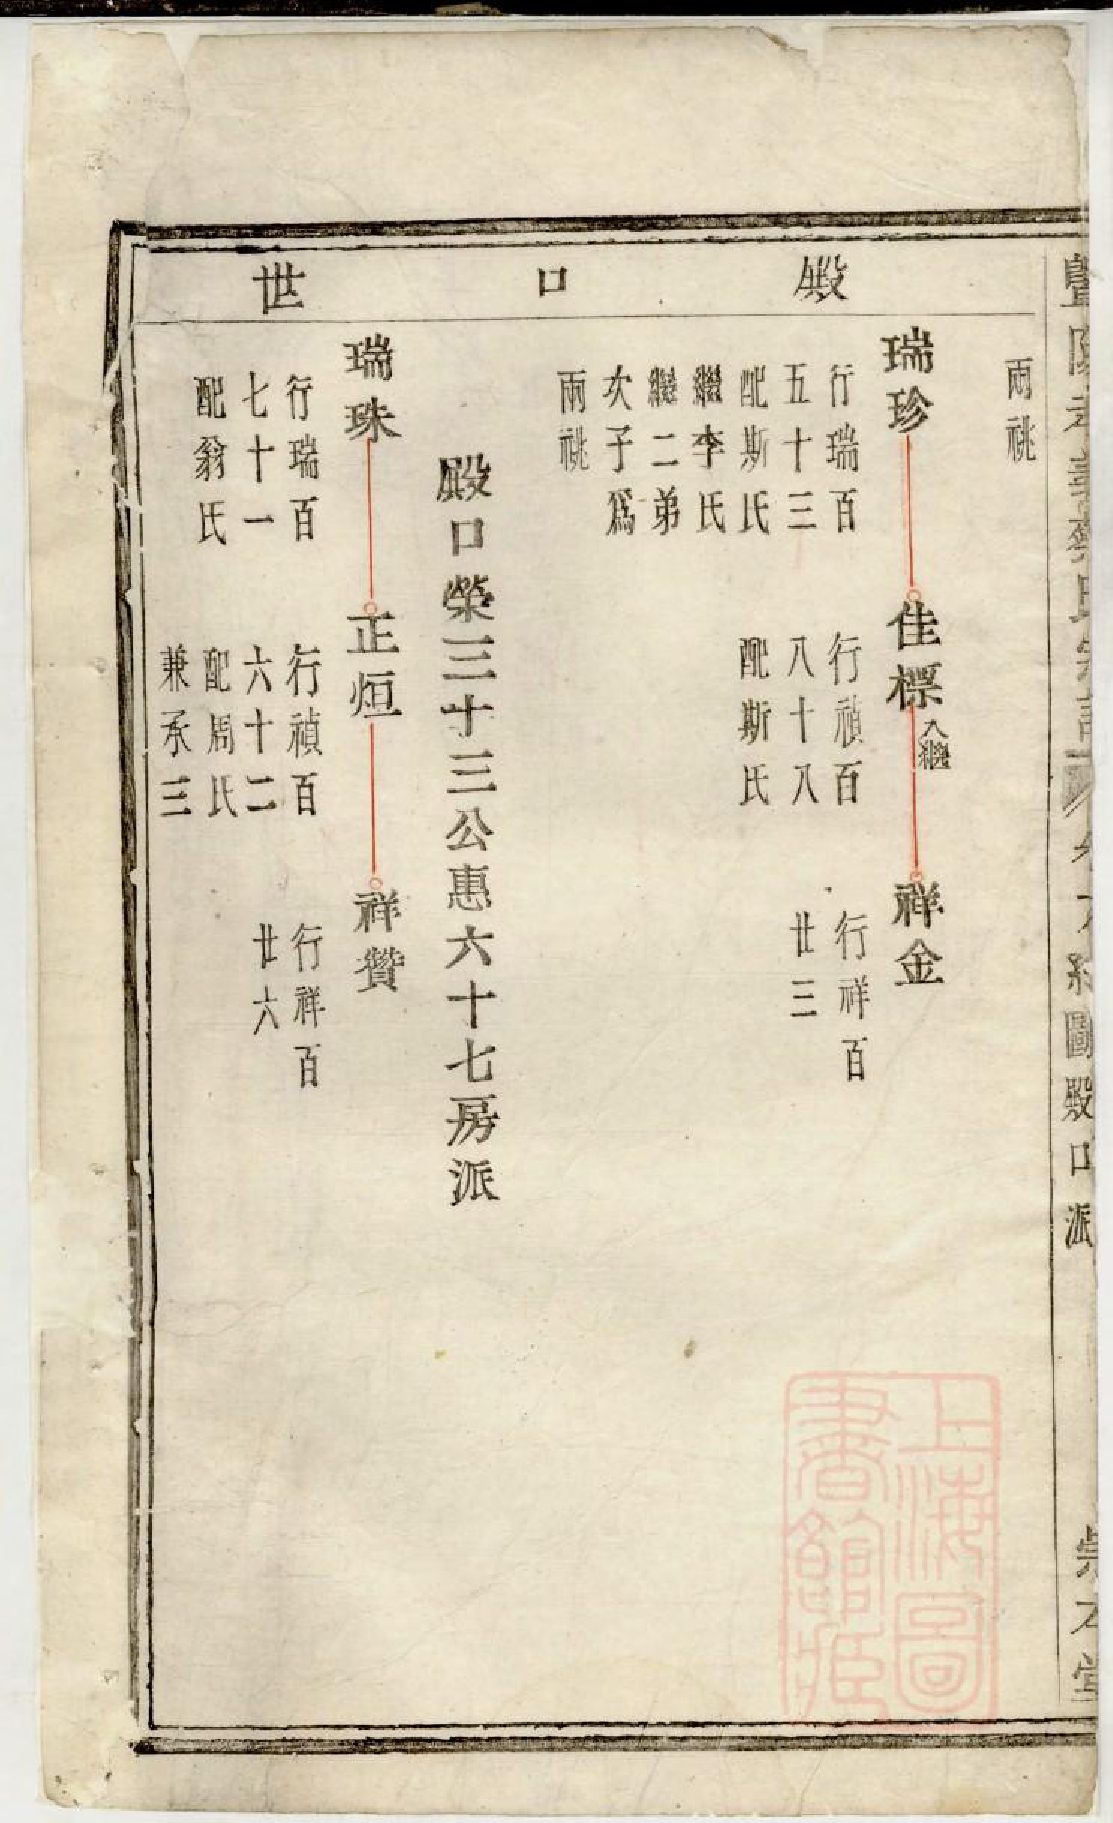 殿口世
兩祧
瑞珍
行瑞百
五十三
配斯氏
繼李氏
繼二弟
次子爲
兩祧
佳標
入繼
行禎百
八十八
配斯氏
祥金
行祥百
廿三
殿口榮三十三公惠六十七房派
瑞珠
行瑞百
七十一
配翁氏
正烜
行禎百
六十二
配周氏
兼承三
祥贊
行祥百
廿六
圖殿口派
崇本堂
上海圖書館藏